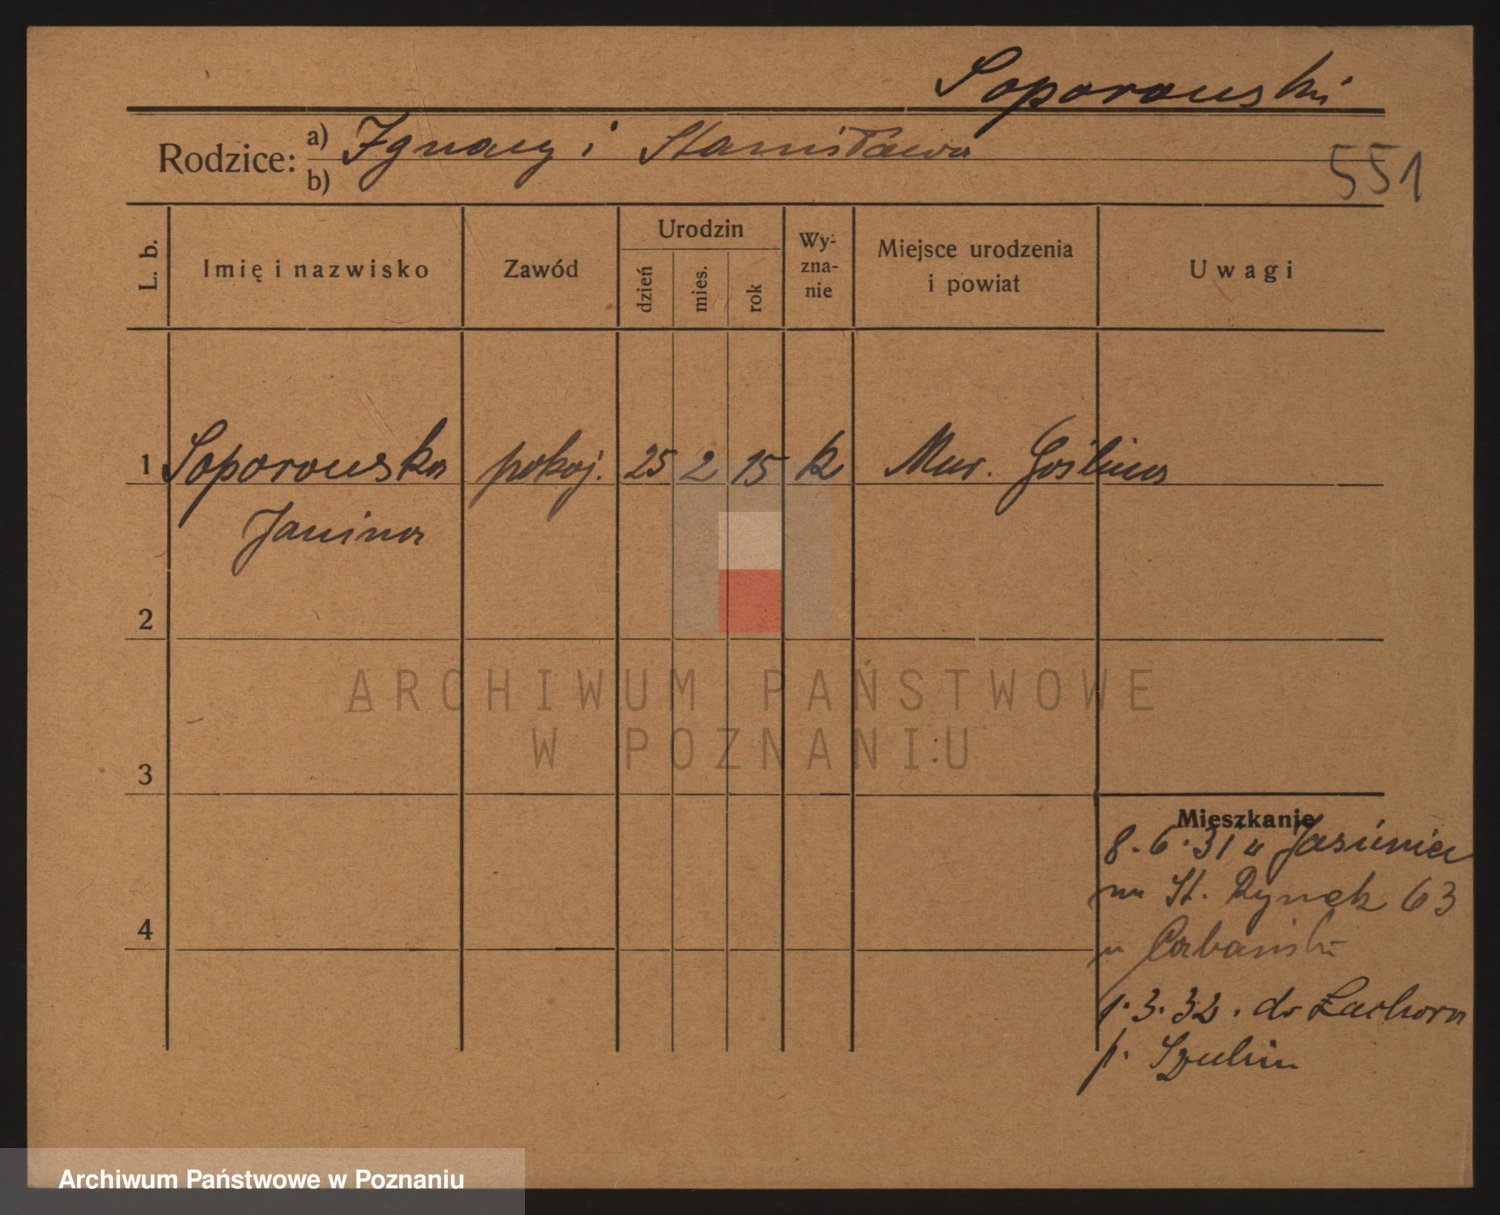 Soporowski
Rodzice: a) Ignacy i Stanisława
b)
551
L. b.
Imię i nazwisko
Zawód
Urodzin
dzień
mies.
rok
Wy-
zna-
nie
Miejsce urodzenia
i powiat
Uwagi
1 Soporowska pokoj. 25 2 15 k Mur. Goślina
Janina
2
ARCHIWUM PAŃSTWOWE
W POZNANIU
3
Mieszkanie
8.6.31 u
na St. Rynek 63
4
1.3.32. do
p. Szubin
Archiwum Państwowe w Poznaniu